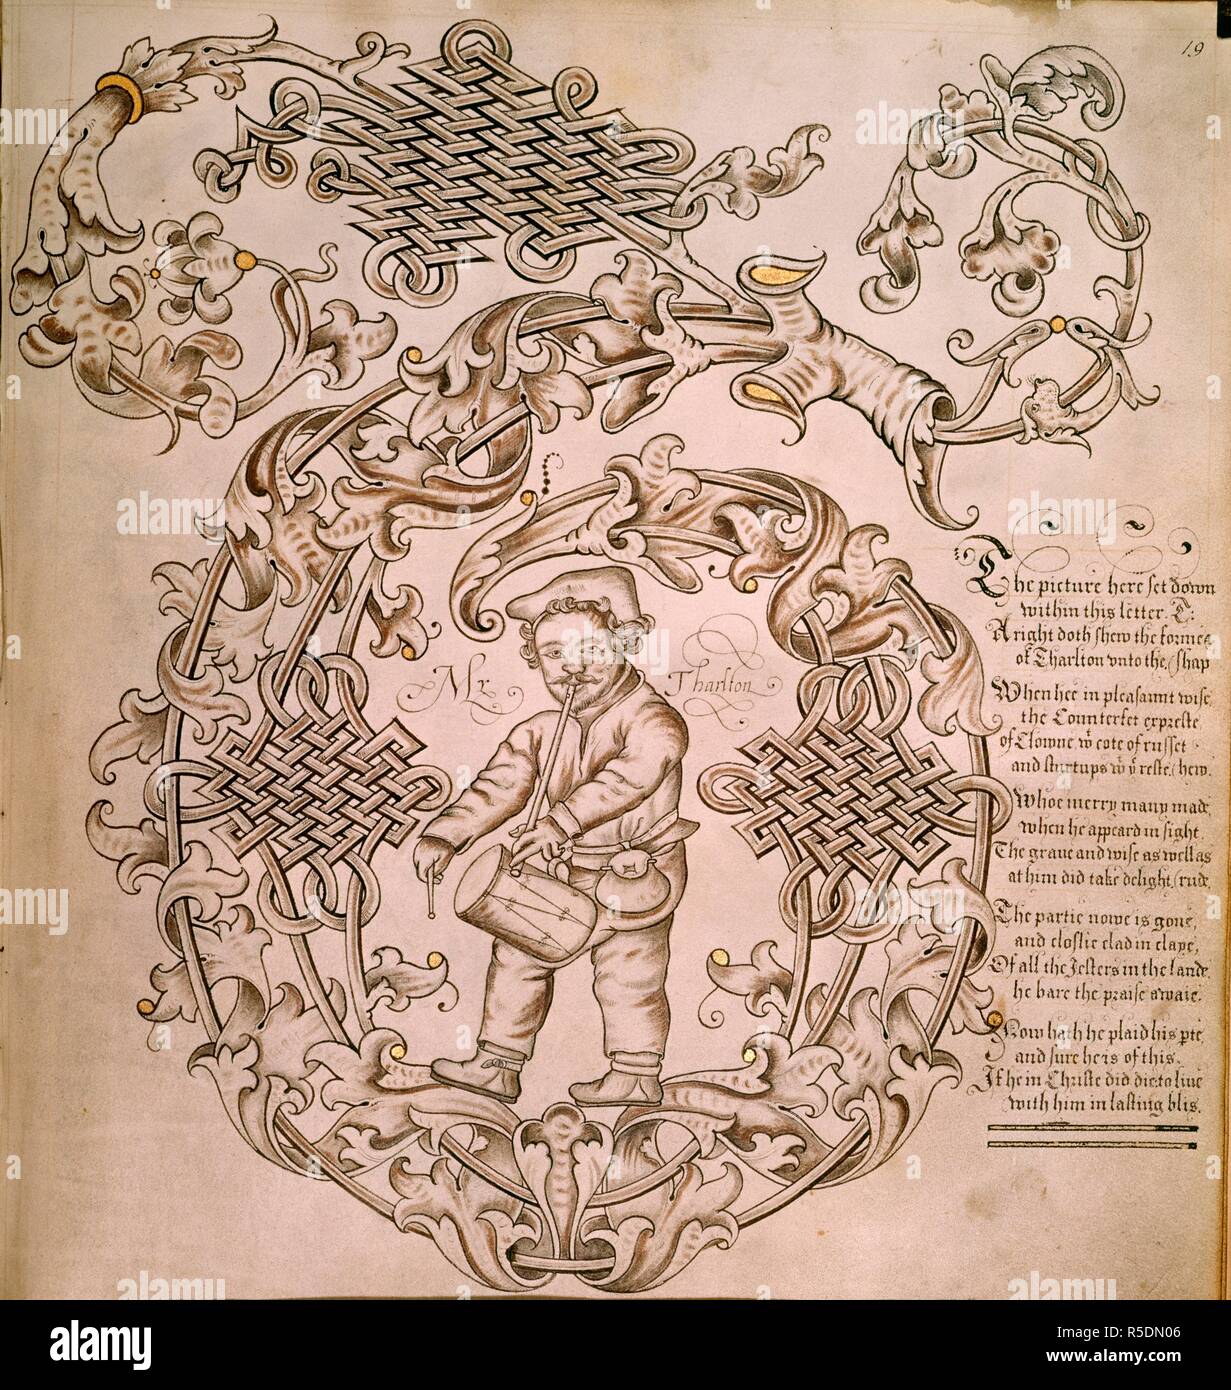 19
Mr Tharlton
The picture here set down
within this letter T:
A right doth shew the forme
of Tharlton vnto the
shap
When hee in pleasaunt wise
the Counterfet expreste
of Clowne wt cote of russet
hew
and sturtups wt ye reste
Whoe merry many made
when he appeard in sight
The graue and wise as well as
rude
at him did take delight
The partie nowe is gone,
and closlie clad in claye,
Of all the Jesters in the lande
he bare the praise awaie.
Now hath he plaid his pte
and sure he is of this,
If he in Christe did die to liue
with him in lasting blis.
alamy
a
Image ID: R5DN06
www.alamy.com